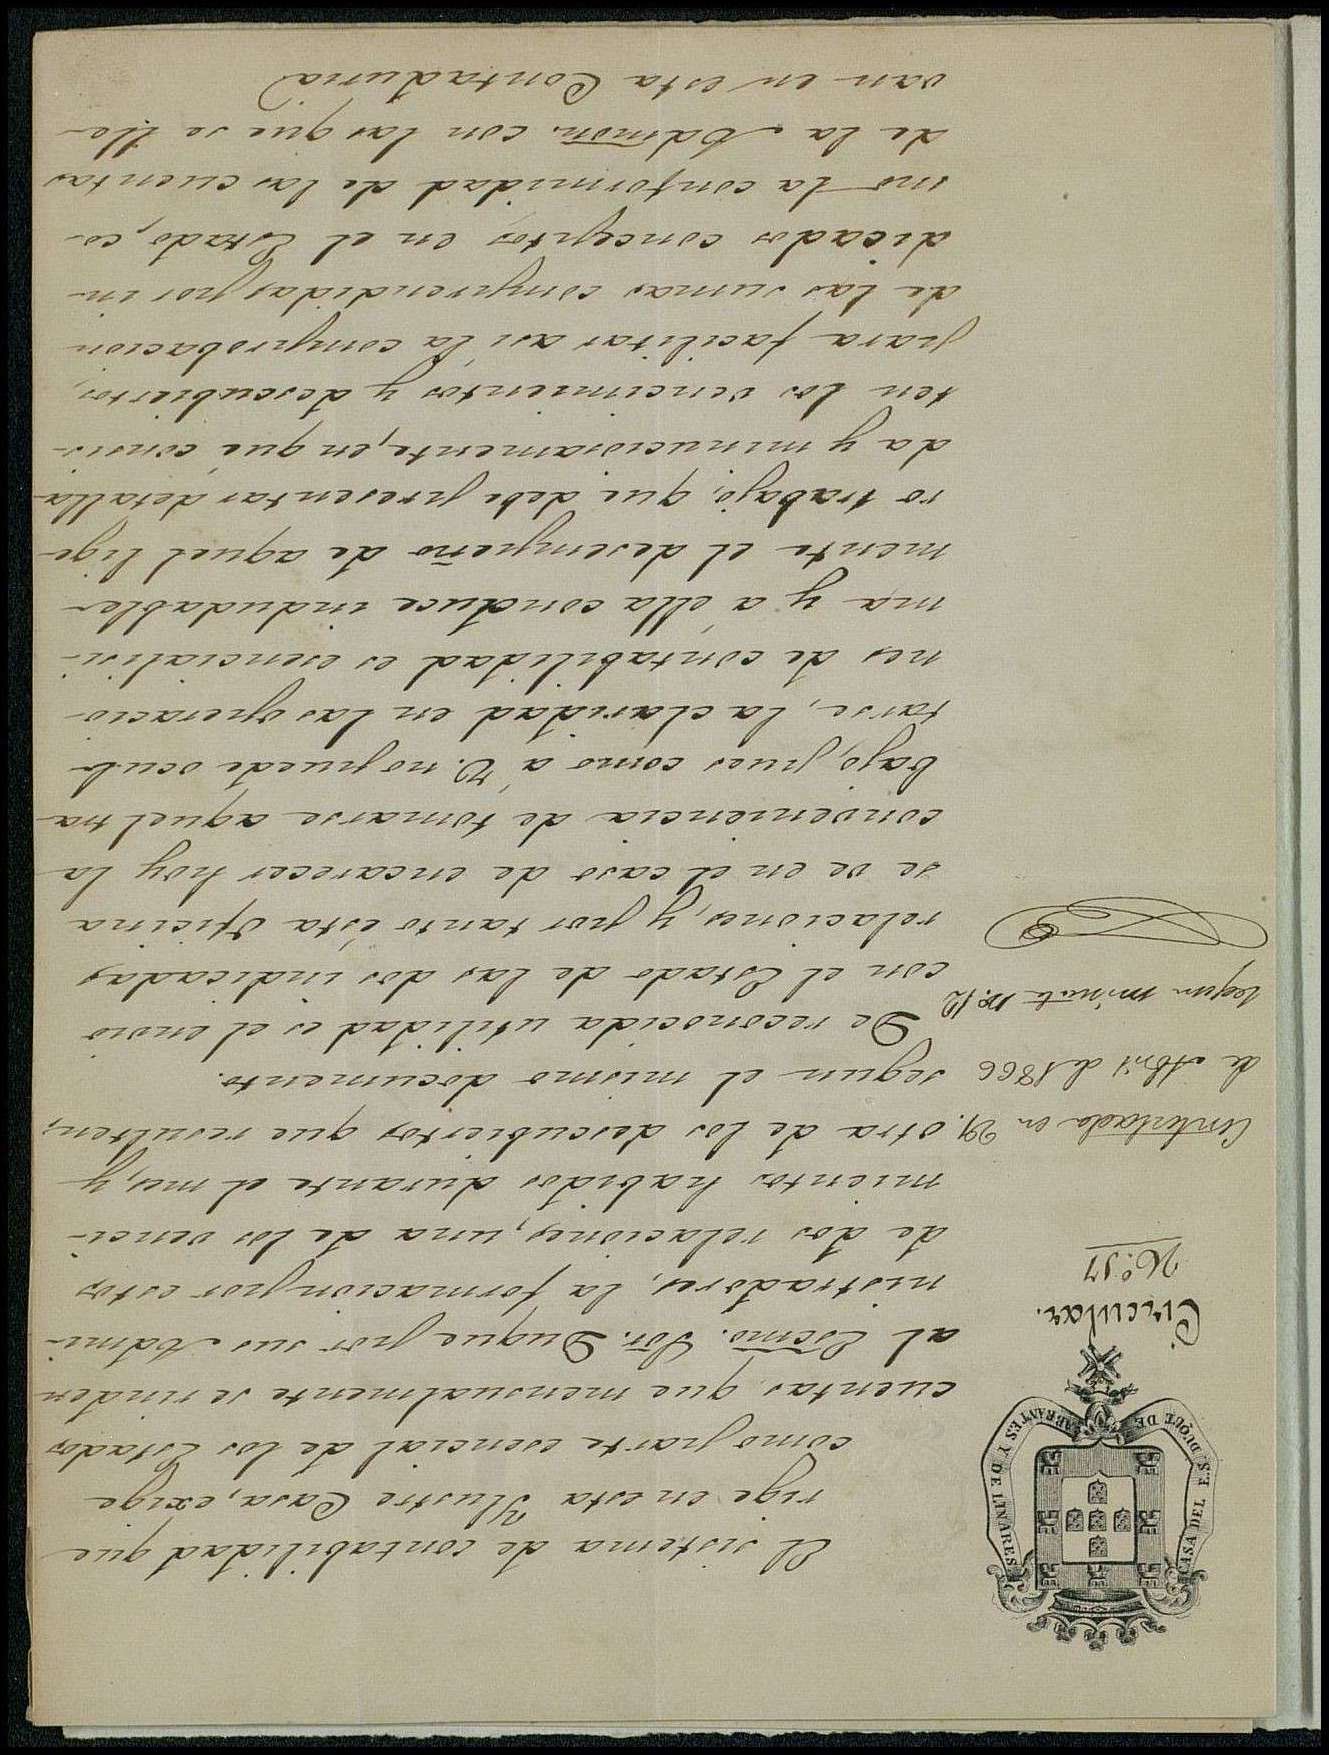 CASA DEL E.S. DUQUE DE ABRANTES Y DE LINARES
Circular.
N.º 17
Contestada en 29
de Abril de 1866
segun minuta N.º 12
El sistema de contabilidad que
rige en esta Ylustre Casa, exige
como parte esencial de los Estados
cuentas que mensualmente se rinden
al Escmo. Sor. Duque por sus Admi-
nistradores, la formacion por estos
de dos relaciones, una de los venci-
mientos habidos durante el mes, y
otra de los descubiertos que resulten,
segun el mismo documento.
De reconocida utilidad es el envio
con el Estado de las dos indicadas
relaciones, y por tanto ésta Oficina
se ve en el caso de encarecer hoy la
conveniencia de tomarse aquel tra-
bajo, pues como á V. no puede ocul-
tarse, la claridad en las operacio-
nes de contabilidad es esencialisi-
ma y á ella conduce indudable-
mente el desempeño de aquel lige-
ro trabajo, que debe presentar detalla-
da y minuciosamente, en que consis-
ten los vencimientos y descubiertos,
para facilitar asi la comprobacion
de las sumas comprendidas por in-
dicados conceptos en el Estado, co-
mo la conformidad de las cuentas
de la Admon. con las que se lle-
van en esta Contaduria